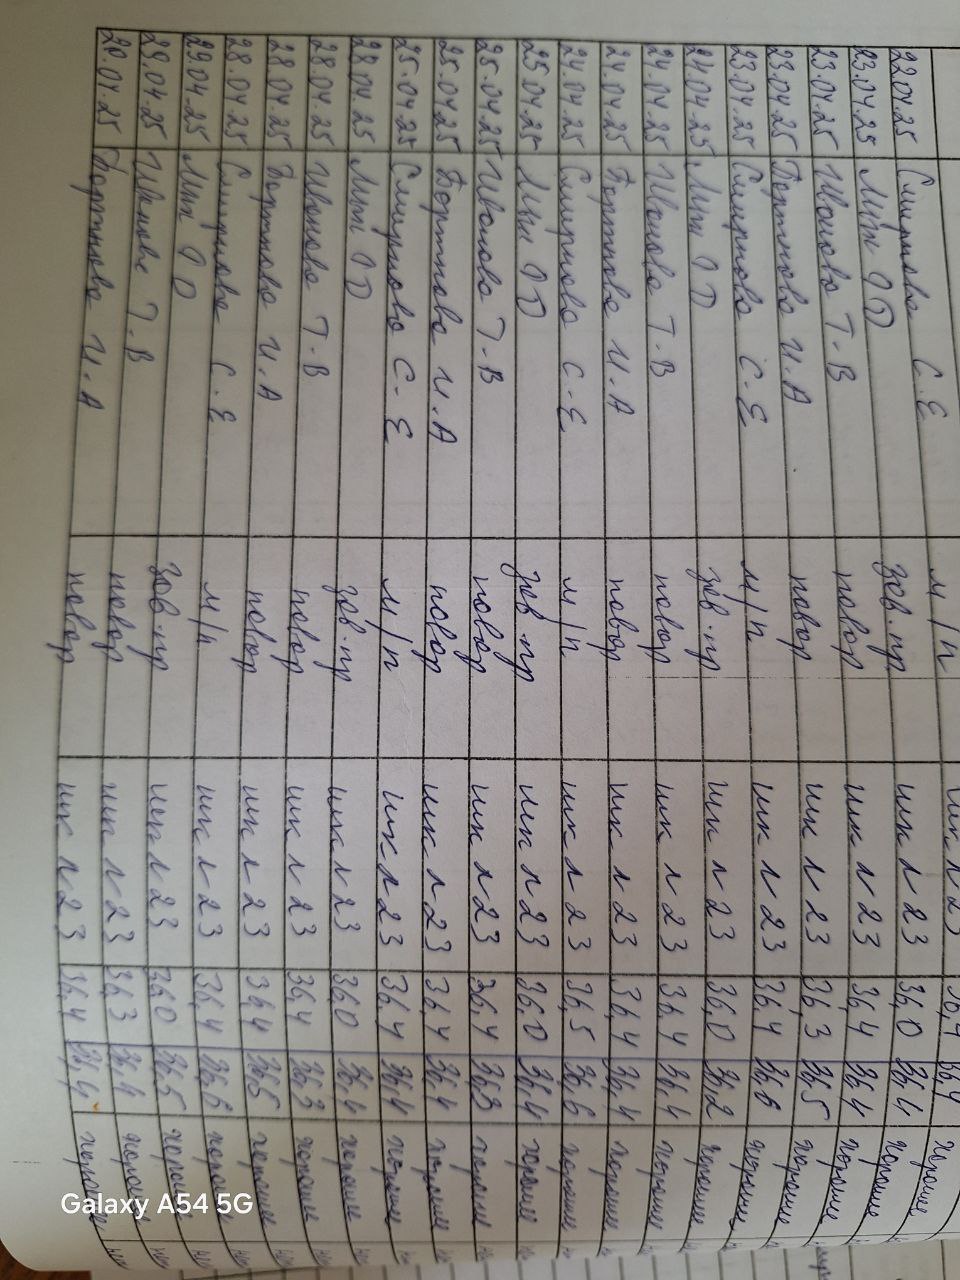 22.04.25 Смирнова С.Е м/п шк n 23 36,4 36,4 хорошее
23.04.25 О D зав.пр шк n 23 36,0 36,4 хорошее
23.04.25 Иванова Т.В повар шк n 23 36,4 36,4 хорошее
23.04.25 Бортнова И.А повар шк n 23 36,3 36,5 хорошее
23.04.25 Смирнова С.Е м/п шк n 23 36,4 36,6 хорошее
24.04.25 О D зав.пр шк n 23 36,0 36,2 хорошее
24.04.25 Иванова Т.В повар шк n 23 36,4 36,4 хорошее
24.04.25 Бортнова И.А повар шк n 23 36,4 36,4 хорошее
24.04.25 Смирнова С.Е м/п шк n 23 36,5 36,6 хорошее
25.04.25 О D зав.пр шк n 23 36,0 36,4 хорошее
25.04.25 Иванова Т.В повар шк n 23 36,4 36,3 хорошее
25.04.25 Бортнова И.А повар шк n 23 36,4 36,4 хорошее
25.04.25 Смирнова С.Е м/п шк n 23 36,4 36,4 хорошее
28.04.25 О D зав.пр шк n 23 36,0 36,4 хорошее
28.04.25 Иванова Т.В повар шк n 23 36,4 36,3 хорошее
28.04.25 Бортнова И.А повар шк n 23 36,4 36,5 хорошее
28.04.25 Смирнова С.Е м/п шк n 23 36,4 36,6 хорошее
29.04.25 О D зав.пр шк n 23 36,0 36,5 хорошее
29.04.25 Иванова Т.В повар шк n 23 36,3 36,4 хорошее
29.04.25 Бортнова И.А повар шк n 23 36,4 36,4 хорошее
Galaxy A54 5G